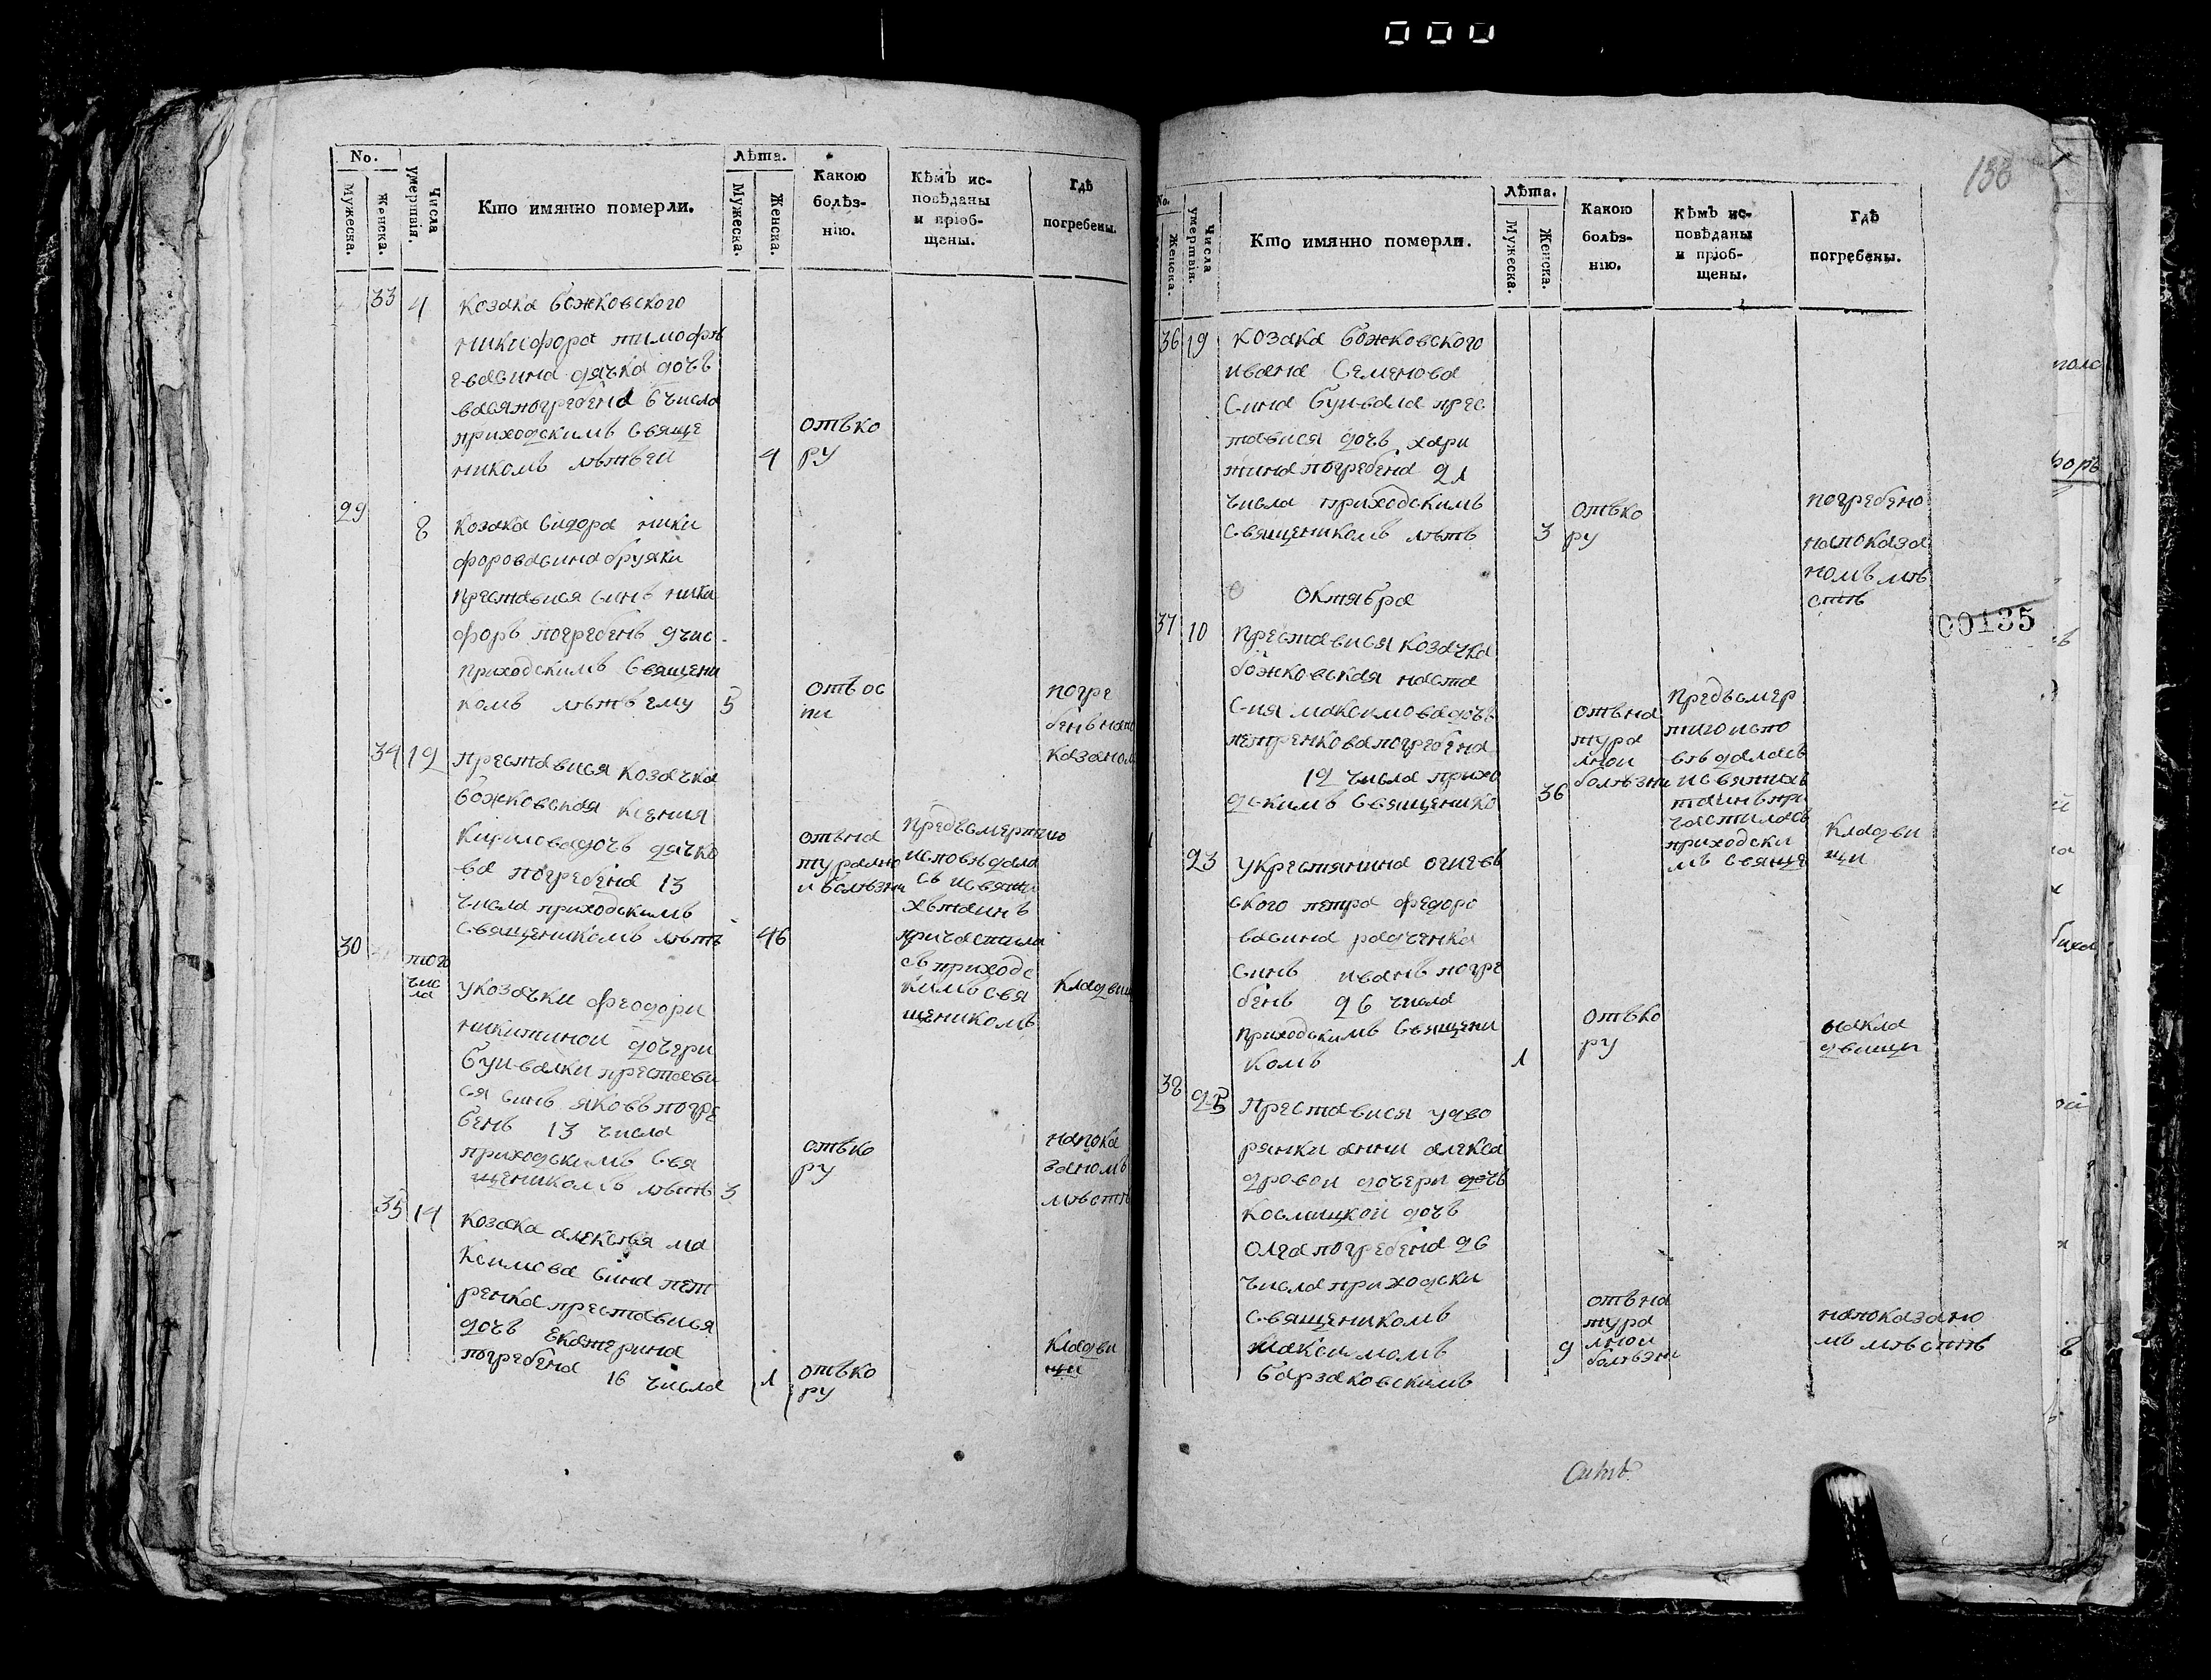 No.
Мужеска.
Женска.
Числа умертвія.
Кто имянно померли.
Лѣта.
Мужеска.
Женска.
Какою болѣз-
нію.
Кѣмъ ис-
повѣданы
и пріоб-
щены.
Гдѣ
погребены.
33 4 козака божковского
никифора тимофѣ
евасина дячка дочъ
вася погребена 6 числа
приходскимъ свяще
никомъ лѣтъ ей 4 отъ ко
ру
29 8 козака сидора ники
форовасина бруяки
преставися синъ ники
форъ погребенъ 9 чис
приходскимъ священи
комъ лѣтъ ему 5 отъ ос
пи
погре
бенъ напо
казаном
34 12 преставися козачка
божковская ксения
кириловадочъ дячко
ва погребена 13
числа приходскимъ
священикомъ лѣтъ 46
отъ на
турално
и болѣзни
предъсмертию
исповѣдала
съ исвяти
хъ таинъ
причастила
съ приходс
кимъ свя
щеникомъ
кладви
30 того
чис
ла укозачки феодори
никитиной дочери
бунвалки престави
ся синъ яковъ погре
бенъ 13 числа
приходскимъ свя
щеникомъ лѣтъ 3 отъ ко
ру
напока
заномъ
мѣстѣ
35 14 козака алексѣя ма
ксимова сина пет
ренка преставися
дочъ екатерина
погребена 16 числа 1 отъ ко
ру
кладви
щи
138
No.
Женска.
Числа умертвія.
Кто имянно померли.
Лѣта.
Мужеска.
Женска.
Какою
болѣз-
нію.
Кѣмъ ис-
повѣданы
и пріоб-
щены.
Гдѣ
погребены.
36 19 козака божковского
ивана семенова
сина бунвала прес
тавися дочъ хари
тина погребена 21
числа приходскимъ
священикомъ лѣтъ 3 отъ ко
ру
погребено
напоказа
номъ мѣ
стѣ
октября
00135
37 10 преставися козачка
божковская наста
сия максимовадочъ
петренкова погребена
12 числа прихо
дскимъ священико 36
отъ на
тура
лной
болѣзни
предъсмер
тию испо
вѣдалась
и святихъ
таинъ при
частилась
приходски
мъ свяще
кладви
щи
23 укрестянина огиев
ского петра федоро
васина радченка
синъ иванъ погре
бенъ 26 числа
приходскимъ священи
комъ 1 отъ ко
ру
накла
двищи
38 25 преставися удво
рянки анни алекса
дровой дочери дочъ
космицкой дочъ
олга погребена 26
числа приходски
священикомъ
максимомъ
барзаковскимъ
9 отъ на
тура
лной
болѣзни
напоказано
мъ мѣстѣ